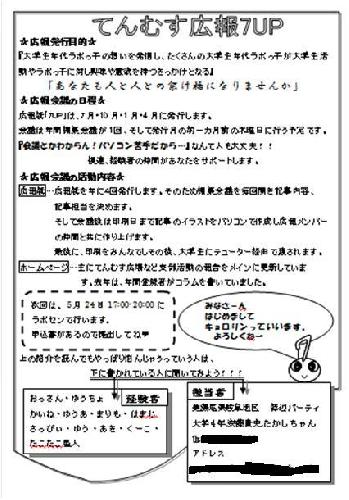 てんむす広報7UP
☆広報発行目的☆
『大学生年代ラボっ子の想いを発信し、たくさんの大学生年代ラボっ子が大学生活
動やラボっ子に対し興味や意欲を持つきっかけとなる』
「あなたも人と人との架け橋になりませんか」
☆広報会議の日程☆
広報紙「7UP」は、7月・10月・1月・4月に発行します。
会議は年間編集会議が1回、そして発行月の約一カ月前の木曜日に行う予定です。
『会議とかわからん！パソコン苦手だから…』なんて人も大丈夫！！
優遇、経験者の仲間があなたをサポートします。
☆広報会議の活動内容☆
広報紙…広報紙を年に4回発行します。そのため編集会議を毎回開き記事内容、
記事担当を決めます。
そして会議後は印刷日まで記事のイラストをパソコンで作成し広報メンバー
の仲間と共に作り上げます。
最後に、印刷をみんなでしその後、大学生にテューター経由で渡されます。
ホームページ…主にてんむす広場など支部活動の報告をメインに更新していま
す。去年は、年間登録者がコラムを書いていました。
次回は、5月24日 17:00-20:00に
ラボセンで行います。
申込書があるので提出してね
みなさーん
はじめまして
キョロリンっていいます。
よろしくねー
上の紹介を読んでもやっぱり悩んじゃうっていう人は、
下に書かれている人に聞いてみよう！！！
経験者
おっさん・ゆうちょ
かいね・ゆうあ・まりも・はまじ
さっぴぃ・ゆう・あき・くーこ・
たこたこ星人
担当者
パーティ
大学4年 たかしちゃん
アドレス